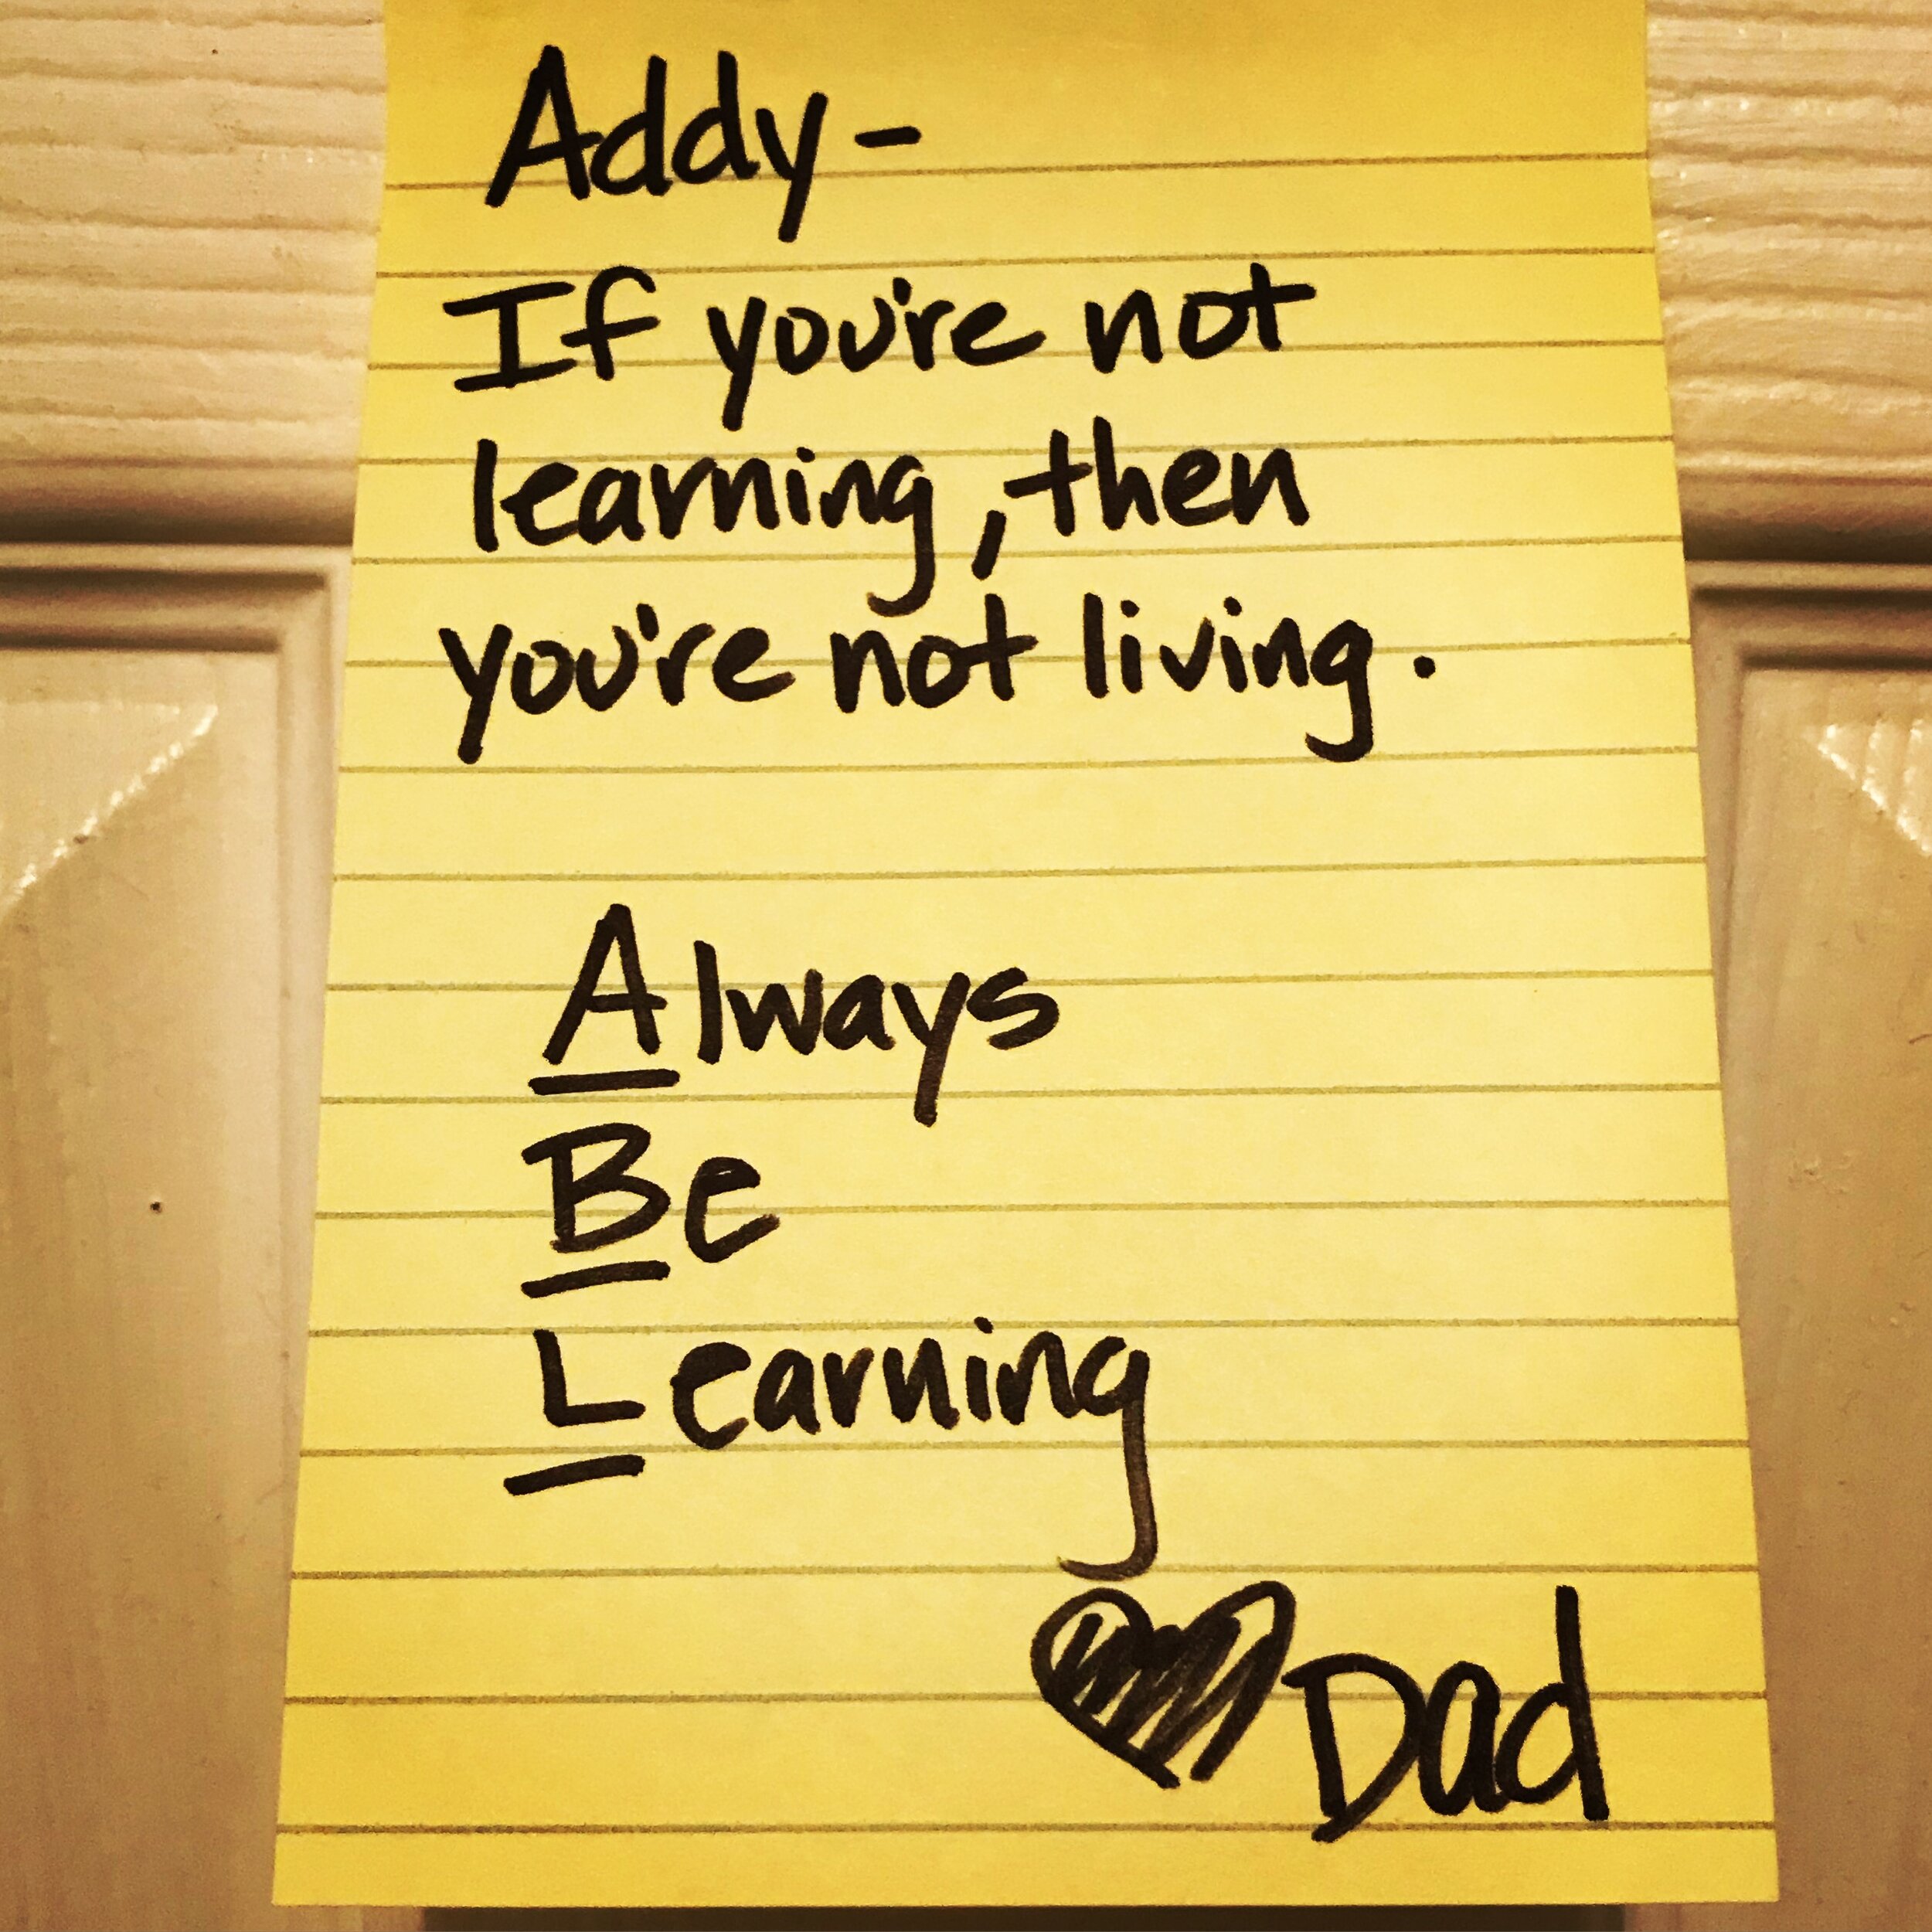 Addy-
If you're not
learning, then
you're not living.
Always
Be
Learning
Dad